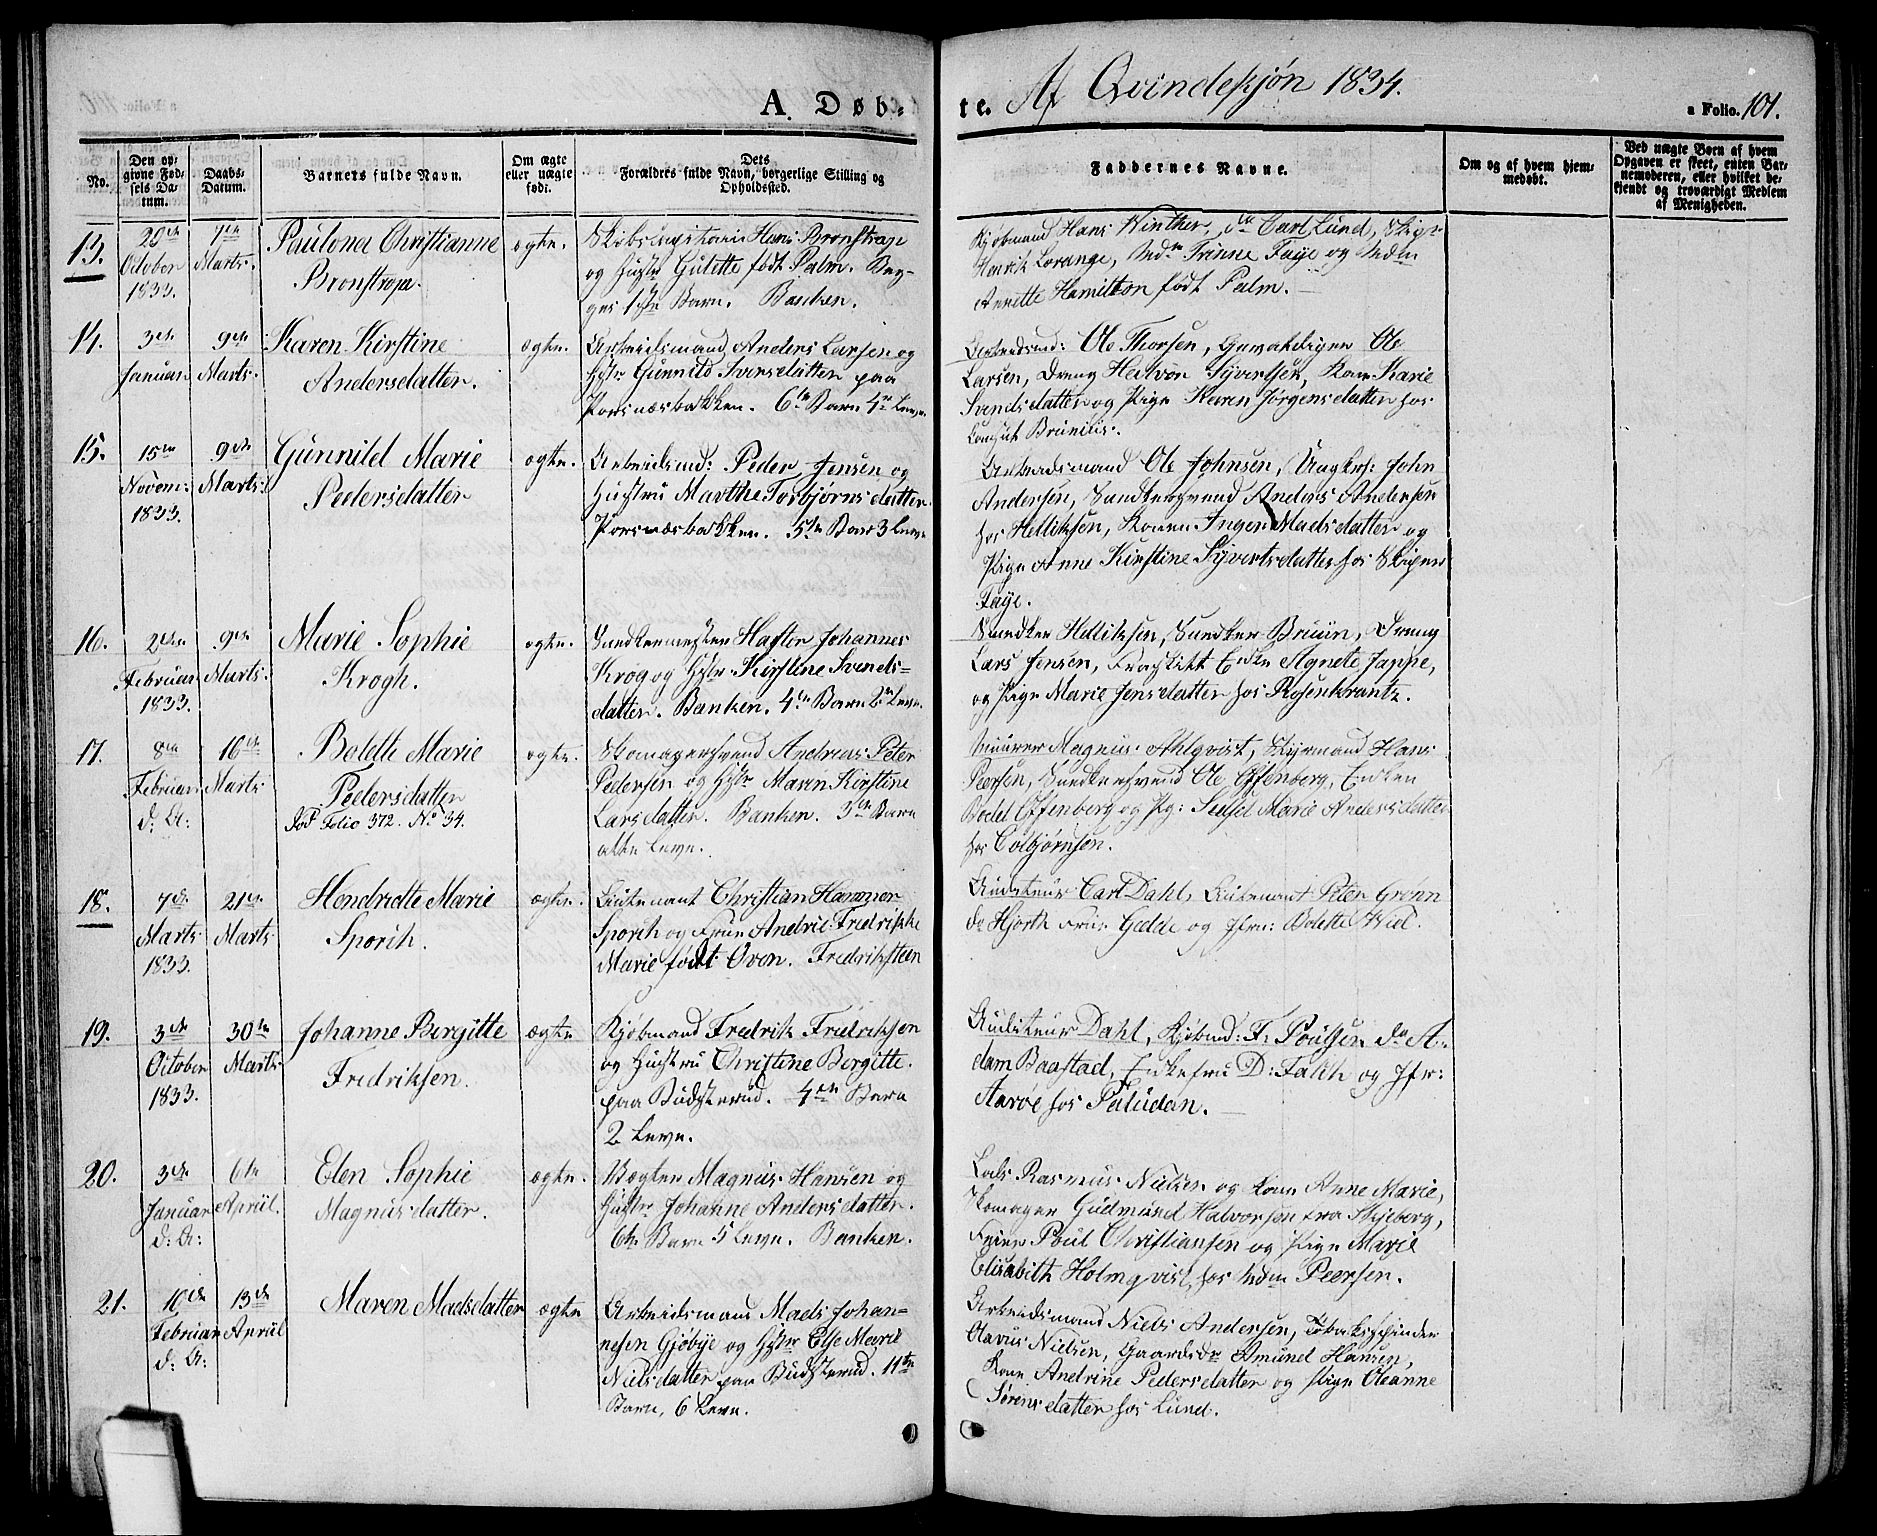 A. Døb-
te. Af Qvindekjøn 1834.
a Folio. 101.
No.
Den op-
givne Fød-
sels Da-
tum.
Daabs-
Datum.
Barnets fulde Navn.
Om ægte
eller uægte
født.
Dets
Forældres fulde Navn, borgerlige Stilling og
Opholdssted.
Faddernes Navne.
Om og af hvem hjem-
medøbt.
Ved uægte Børn af hvem
Opgaven er skeet, enten Bar-
nemoderen, eller hvilket be-
kjendt og troværdigt Medlem
af Menigheden.
13.
29de
October
1833.
7de
Marts.
Paulona Christianne
Bronstrop.
ægte.
Hans Bronstrop
og Hustr Gulette født Palm. Beg-
ges 1ste Barn. Banken.
Kjøbmand Hans Winther, do Carl Lund,
Henrik Lorange, Mdm Trinne Faye og Mdm
Annette Hamilton født Palm.
14.
3de
Januar
9de
Marts.
Karen Kirstine
Andersdatter.
ægte.
Arbeidsmand Anders Larsen og
Hstr Gunnild Sversdatter paa
Porsnæsbakken. 6te Barn 4re Leve.
Arbeidsmd: Ole Thorsen, Ole
Larsen, Dreng Halvor Syvertsen, Kone Karie
Svendsdatter og Pige Karen Jørgensdatter hos
Consul
15.
15de
Novem:
1833.
9de
Marts.
Gunnild Marie
Pedersdatter
ægte.
Arbeidsmd: Peder Jensen og
Hustru Marthe Torbjørnsdatter
Porsnæsbakken. 5te Barn 3 Leve
Arbeidsmand Ole Johnsen, Ungkrl: John
Andersen, Snedkersvend Anders Andersen
hos Helliksen, Konen Inger Madsdatter og
Pige Anne Kirstine Syvertsdatter hos Skipper
Faye.
16.
2den
Februar
1833.
9de
Marts.
Marie Sophie
Krogh.
ægte.
Snedkermester Hafton Johannes
Krog og Hstr. Kirstine Svends-
datter. Banken. 4de Barn 2 Leve.
Snedker Helliksen, Snedker Bruun, Dreng
Lars Jensen, Enke Agnete Jappe,
og Pige Marie Jensdatter hos Rosenkrantz.
17.
8de
Februar
d: A:
16de
Marts
Bolette Marie
Pedersdatter
Død Folio 372. No 34.
ægte.
Skomagersvend Andreas Peter
Pedersen og Hstr Maren Kirstine
Larsdatter. Banken. 3de Barn
alle Leve.
Muurer Magnus Ahlqvist, Styrmand Hans
Peersen, Snedkersvend Ole Effenberg, Enken
Bodel Effenberg og Pg: Marie Andersdatter
hos Colbjørnsen.
18.
7de
Marts
1833.
21de
Marts
Hendridtte Marie
Sporch.
ægte.
Lieutenant Christian Hammer
Sporch og Frue Andrie Fredrikke
Marie født Oven. Fredriksteen
Auditeur Carl Dahl, Lieutenant Peter Grønn
do Hjorth Frue Gedde og Jfru: Bolette Wiel.
19.
3de
October
1833.
30te
Marts
Johanne Bergitte
Fredriksen.
ægte
Kjøbmand Fredrik Fredriksen
og Hustru Christine Bergitte.
paa Budsterud. 4de Barn
2 Leve.
Auditeur Dahl, Kjøbmd: F: Poulsen do A-
dam Baastad, Enkefru D: Falch og Jfr:
Aarøe hos Paludan.
20.
3de
Januar
d: A:
6te
April.
Elen Sophie
Magnusdatter.
ægte.
Vægter Magnus Hansen og
Hustr Johanne Andersdatter.
6te Barn 5 Leve. Banken.
Lods Rasmus Nielsen og Kone Anne Marie,
Skomager Gudmund Halvorsen fra Skjeberg,
Poul Christiansen og Pige Marie
Elisabeth Holmqvist hos Mdm Peersen.
21.
16de
Februar
d: A:
13de
April
Maren Madsdatter
ægte
Arbeidsmand Mads Johan-
nesen Gjøbye og Hstr Else Marie
Nielsdatter paa Budsterud. 11te
Barn, 6 Leve.
Arbeidsmand Niels Andersen, Tobakspinder
Olavus Nielsen, Gaardsdr Amund Hansen,
Kone Andrine Pedersdatter og Pige Oleanne
Sørensdatter hos Lund.